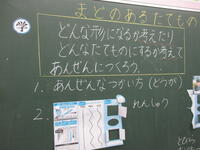 学
まどのあるたてもの
どんな形になるか考えたり
どんなたてものにするか考えて
あんぜんにつくろう。
1. あんぜんなつかい方(どうが)
2.
れんしゅう